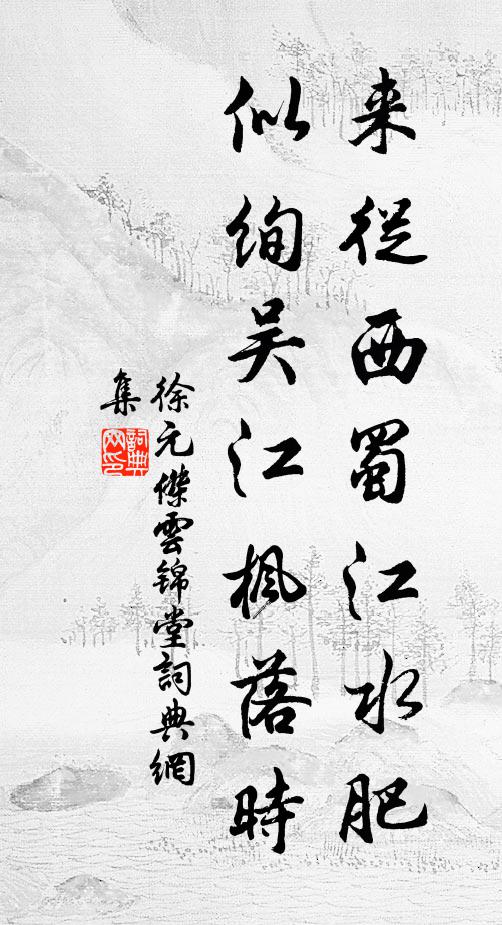 来從西蜀江水肥
似绚吴江楓落時
徐元傑雲锦堂詞典網
集
詞典网印